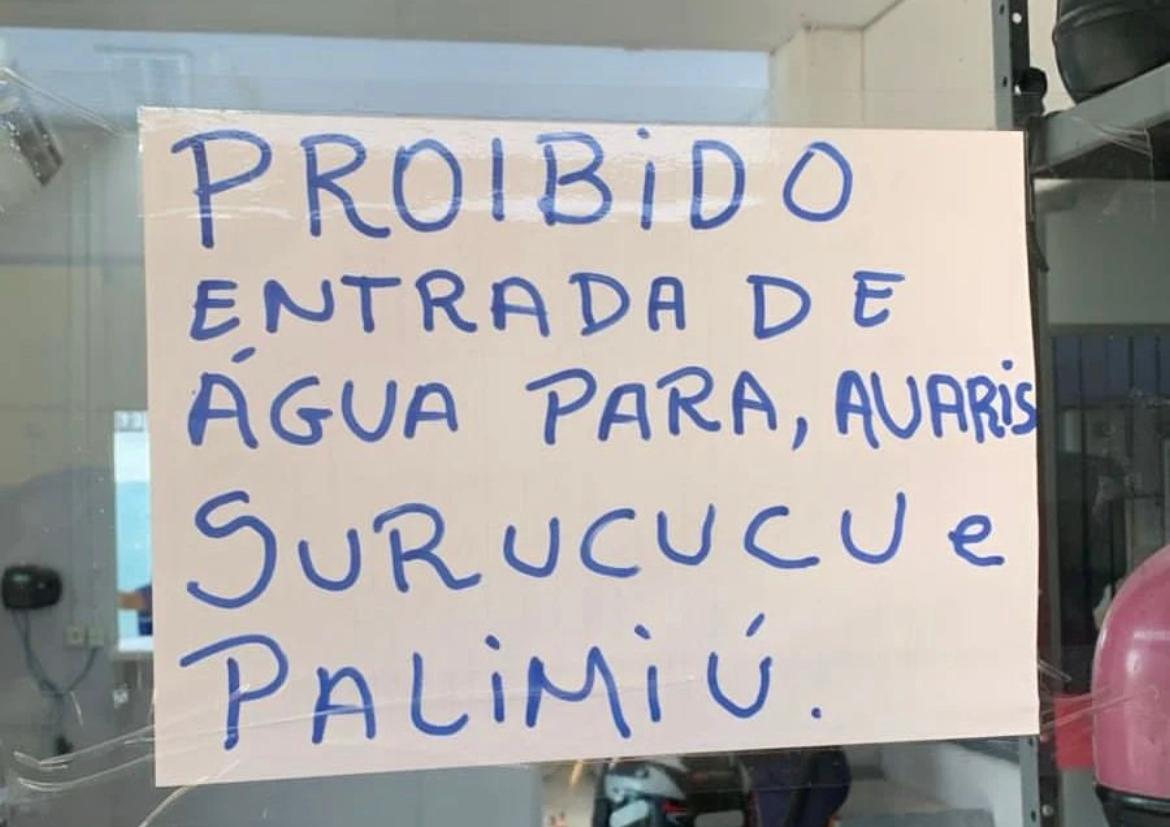 PROIBiDO
ENTRADA DE
ÁGUA PARA, AUARiS
SURUCUCU e
PALiMiÚ.